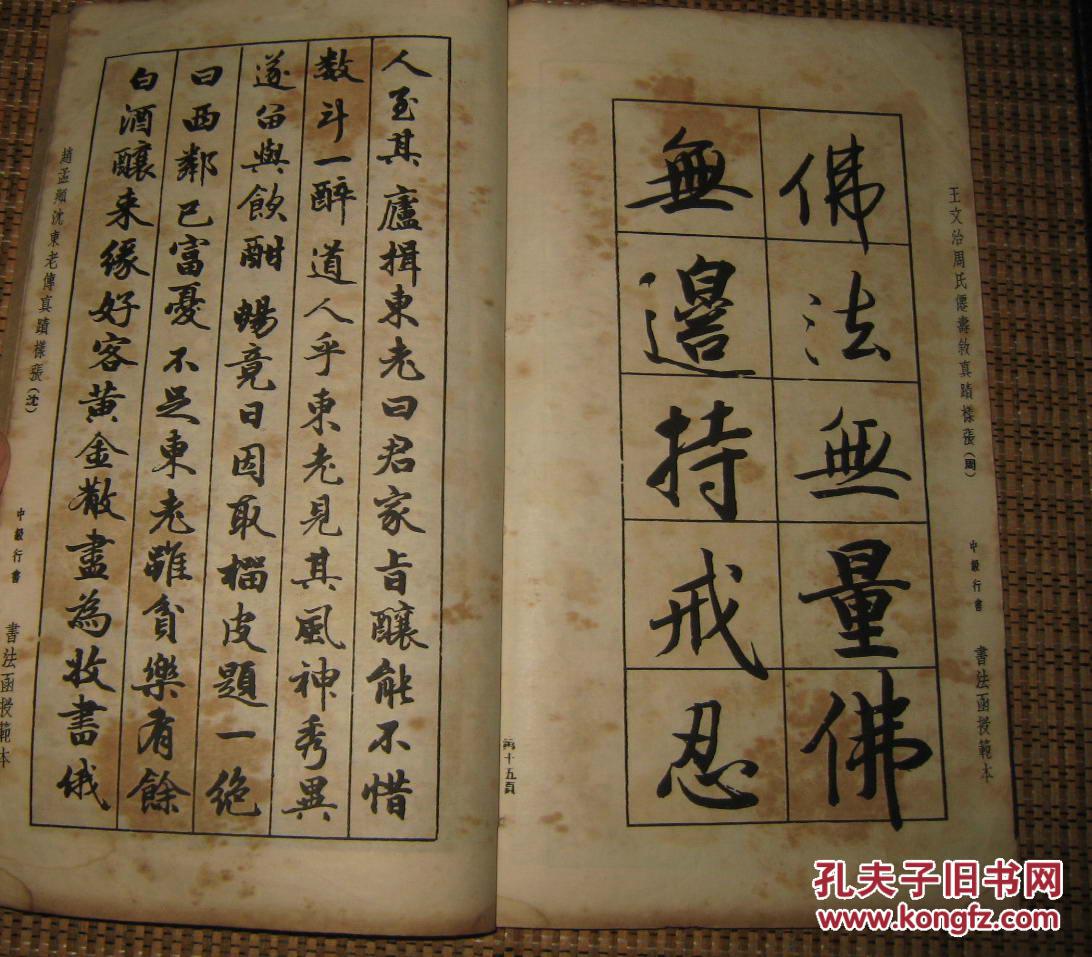 王文治周氏僊壽敘真蹟樣張（周）
中級行書
書法函授範本
佛法無量佛
無邊持戒忍
第十五頁
人至其廬揖東老曰君家旨釀能不惜
数斗一醉道人乎東老見其風神秀異
遂留與飲酣暢竟日因取榴皮題一絶
曰西鄰已富憂不足東老雖貧樂有餘
白酒釀来緣好客黄金散盡為收書俄
趙孟頫沈東老傳真蹟樣張（沈）
中級行書
書法函授範本
孔夫子旧书网
www.kongfz.com